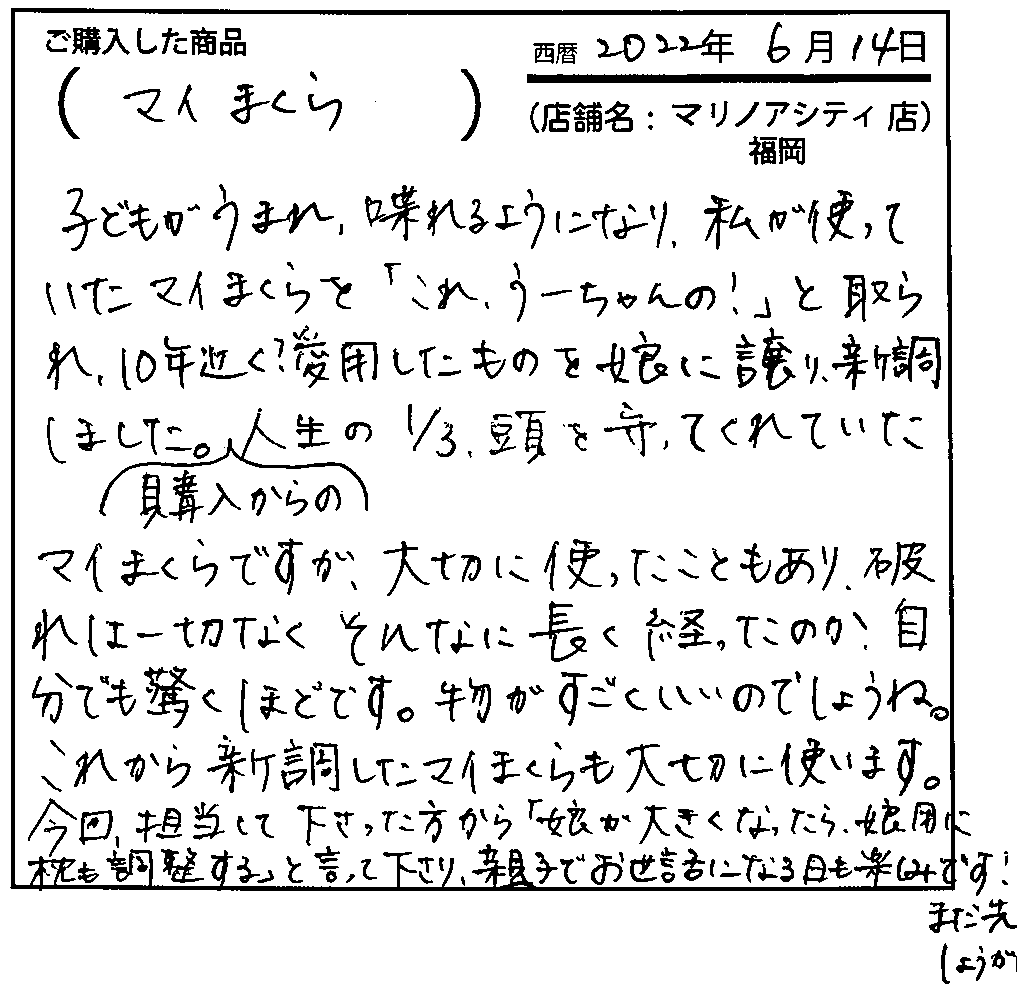 ご購入した商品
(マイまくら)
西暦 2022年 6月14日
(店舗名:マリノアシティ店)
福岡
子どもがうまれ、喋れるようになり、私が使って
いたマイまくらを「これ、うーちゃんの!」と取ら
れ、10年近く?愛用したものを娘に譲り、新調
しました。人生の1/3、頭を守ってくれていた
購入からの
マイまくらですが、大切に使ったこともあり、破
れは一切なくそんなに長く経ったのか!自
分でも驚くほどです。物がすごくいいのでしょうね。
これから新調したマイまくらも大切に使います。
今回、担当して下さった方から「娘が大きくなったら、娘用に
枕も調整する」と言って下さり、親子でお世話になる日も楽しみです!
まだ先
しょうが